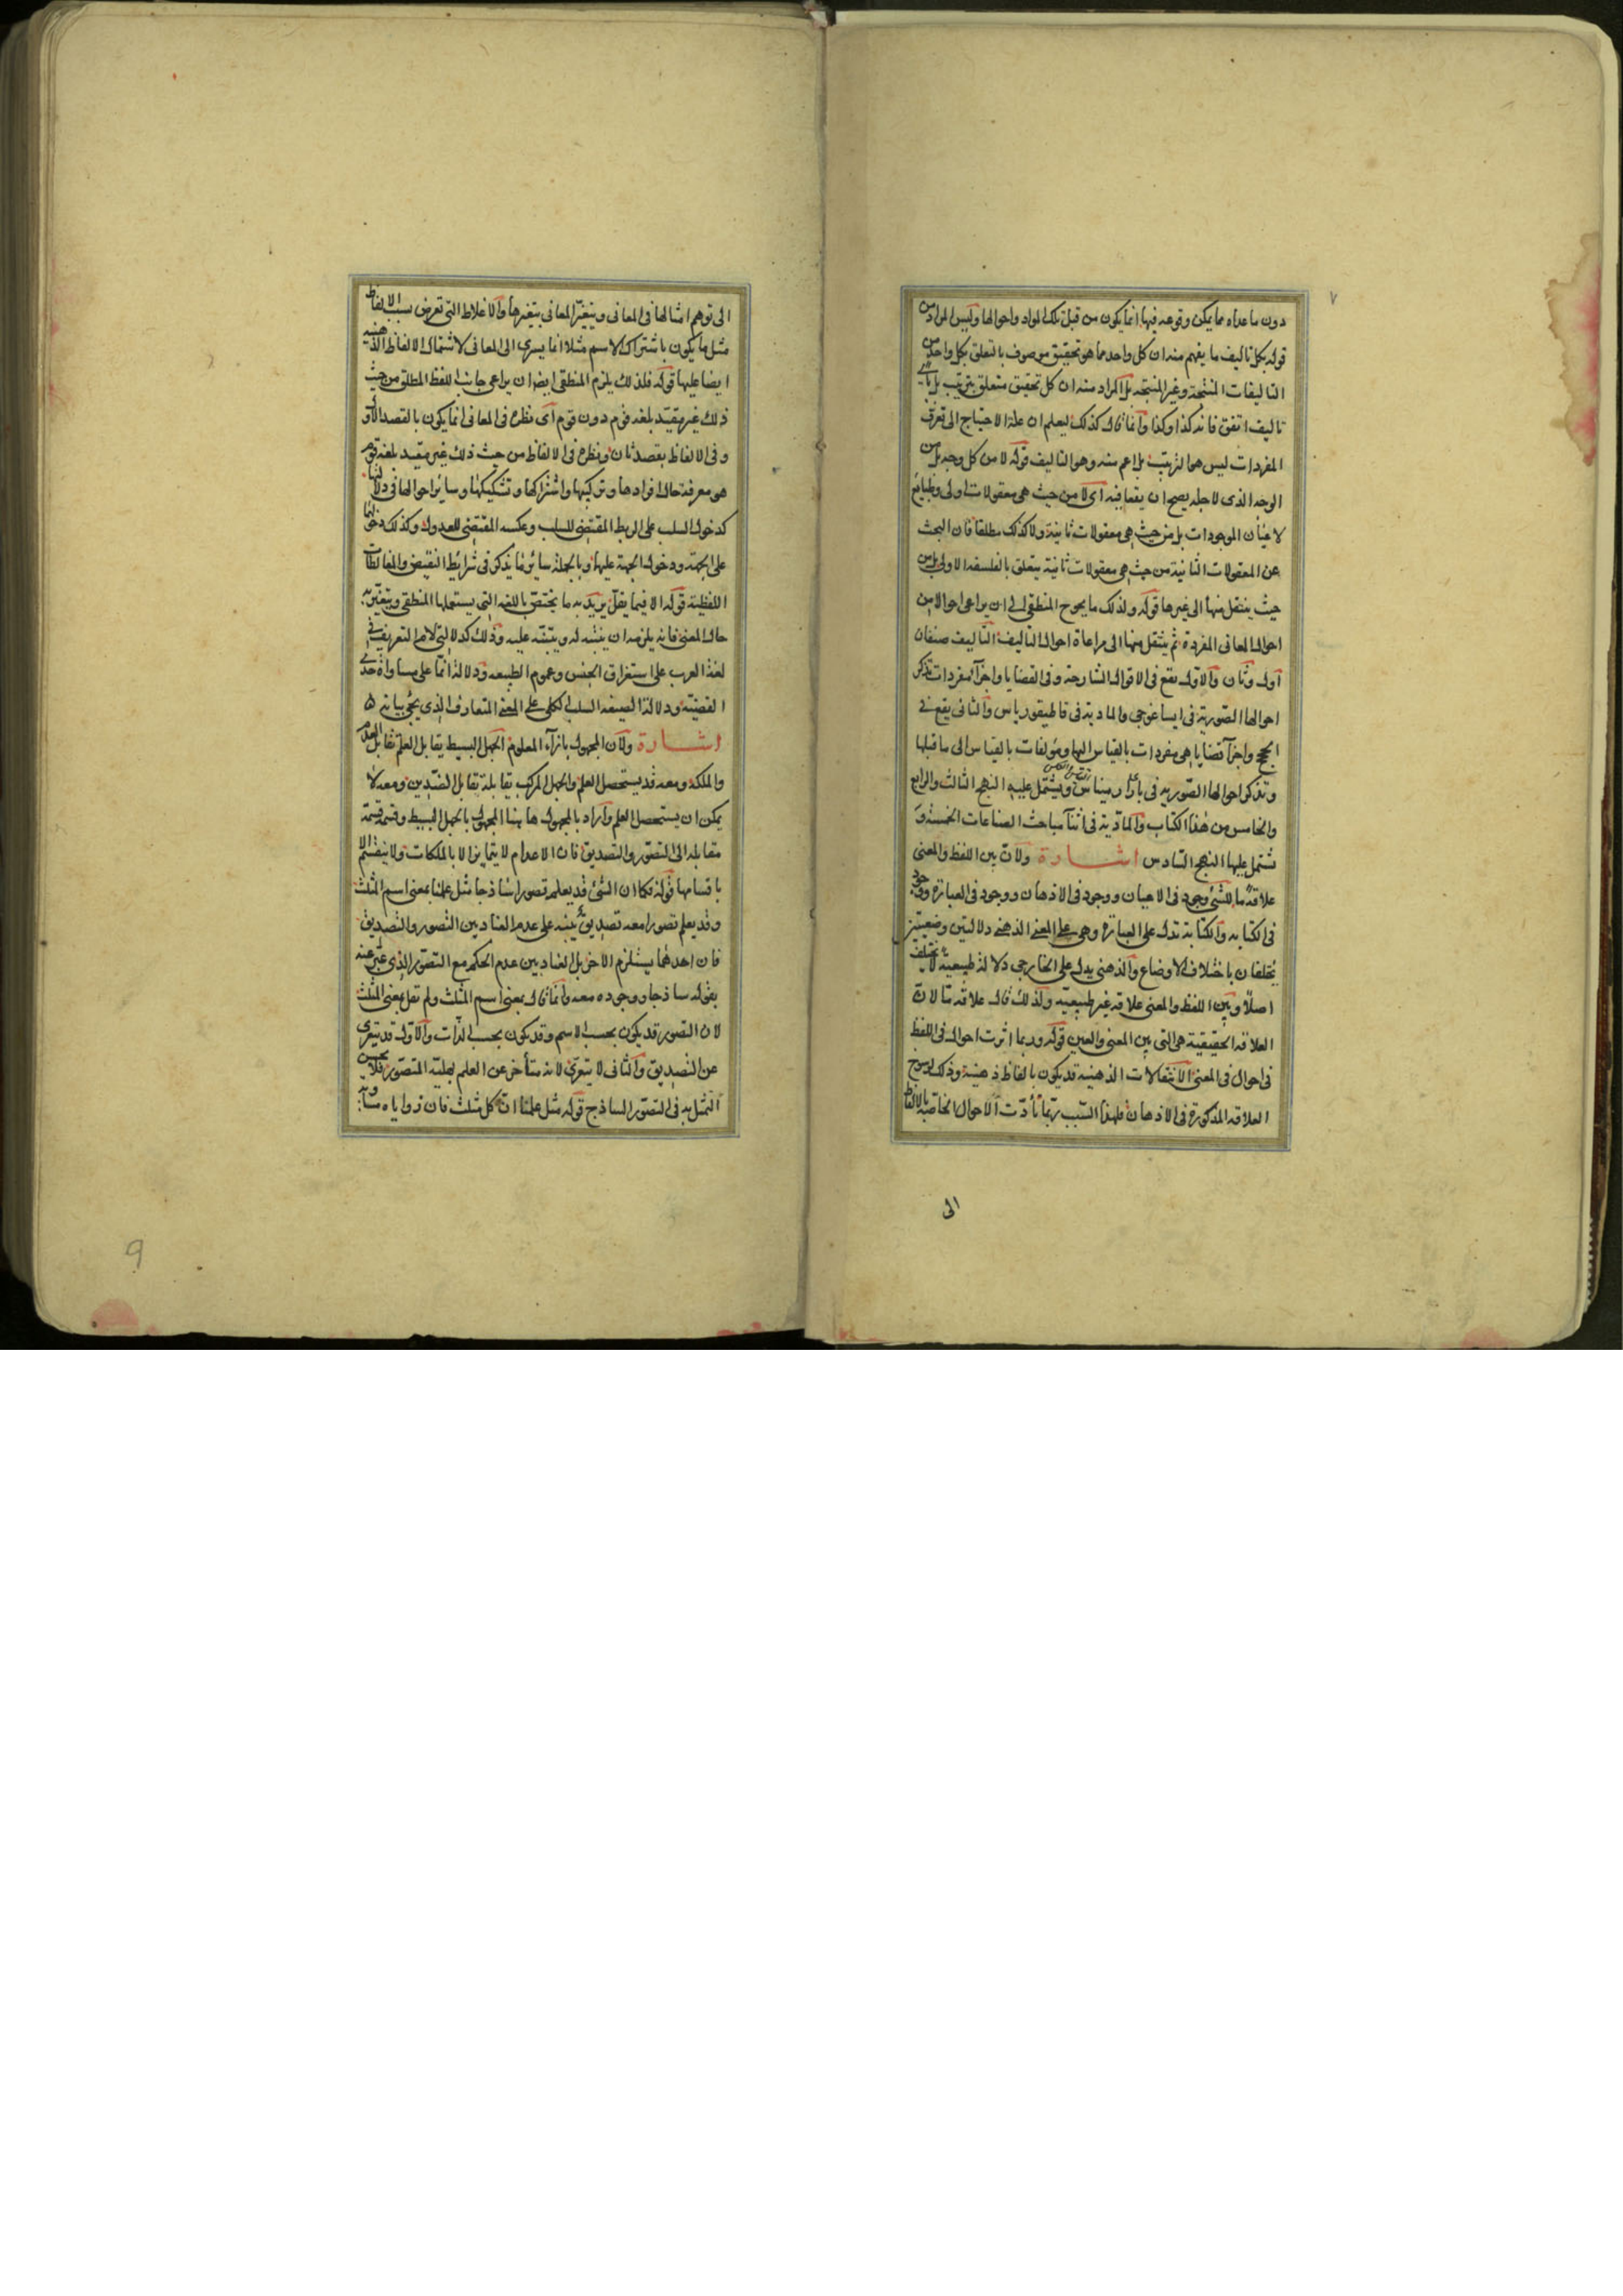 ٧
دون ما عداه مما يمكن وقوعه فيها انما يكون من قبل تلك المواد واحوالها وليس المراد من
قوله بكل تاليف ما يفهم منه ان كل واحد مما هو تحقيق موصوف بالتعلق بكل واحد من
التاليفات المنتجة وغير المنتجه بل المراد منه ان كل تحقيق متعلق بترتيب بل باي
تاليف اتفق فانه كذا وكذا وانما قال كذلك ليعلم ان علة الاحتياج الى تعرف
المفردات ليس هو الترتيب بل اعم منه وهو التاليف قوله لا من كل وجه بل من
الوجه الذى لاجله يصح ان يقعا فيه اى لا من حيث هى معقولات اولى وطبايع
لاعيان الموجودات بل من حيث هى معقولات ثانية ولا كذلك مطلقا فان البحث
عن المعقولات الثانية من حيث هى معقولات ثانية يتعلق بالفلسفه الاولى بل من
حيث ينتقل منها الى غيرها قوله ولذلك ما يحوج المنطقى الى ان يراعى احوالا من
احوال المعانى المفردة ثم ينتقل منها الى مراعاة احوال التاليف التاليف صنفان
اول وثان والاول يقع فى الاقوال الشارحة وفى القضايا واجزآؤه مفردات تذكر
احوالها الصورية فى ايساغوجى والمادية فى قاطيغورياس والثانى يقع فى
الحجج واجزآؤه قضايا هى مفردات بالقياس اليها ومؤلفات بالقياس الى ما قبلها
وتذكر احوالها الصوريه فى بارارميناس ويشتمل عليه النهج الثالث والرابع
والخامس من هذا الكتاب والمادية فى اثنآ مباحث الصناعات الخمسة و
تشتمل عليها النهج السادس اشارة ولان بين اللفظ والمعنى
علاقة ما للشئ وجود فى الاعيان ووجود فى الاذهان ووجود فى العبارة ووجود
فى الكتابه والكتابة تدل على العبارة وهى على المعنى الذهنى دلالتين وضعيتين
يختلفان باختلاف الاوضاع والذهنى يدل على الخارجى دلالة طبيعية لا يختلف
اصلا وبين اللفظ والمعنى علاقه غير طبيعيه ولذلك قال علاقه ما لان
العلاقه الحقيقية هى التى بين المعنى والعين قوله وربما اثرت احوال فى اللفظ
فى احوال فى المعنى الانتقالات الذهنيه قد يكون بالفاظ ذهنية وذلك لرسوخ
العلاقه المذكورة فى الاذهان فلهذا السبب ربما تادت الاحوال الخاصه بالالفاظ
الى
الى توهم امثالها فى المعانى ويتغير المعانى بتغيرها والاغلاط التى تعرض بسبب الالفاظ
مثل ما يكون باشتراك الاسم مثلا انما يسرى الى المعانى لاشتمال الالفاظ الذهنيه
ايضا عليها قوله فلذلك يلزم المنطقى ايضا ان يراعى جانب اللفظ المطلق من حيث
ذلك غير مقيد بلغه قوم دون قوم اى نظره فى المعانى انما يكون بالقصد الاول
وفى الالفاظ بقصد ثان ونظره فى الالفاظ من حيث ذلك غير مقيد بلغة قوم
هى معرفة حال افرادها وتركيبها واشتراكها وتشكيكها وساير احوالها فى دلالتها
كدخول السلب على الربط المقتضى للسلب وعكسه المقتضى للعدول وكذلك دخولها
على الجهة ودخول الجهة عليها وبالجملة ساير ما يذكر فى شرايط النقيض والمغالطات
اللفظية قوله الا فيما يقل يريد به ما يختص باللغه التى يستعملها المنطقى ويتغير به
حال المعنى فانه يلزمه ان ينبه له وينبه عليه وذلك كدلالة لام التعريف فى
لغة العرب على استغراق الجنس وعموم الطبيعه ودلالة انما على مساواة حدى
القضيه ودلالة الصيغه السلب الكلى على المعنى المتعارف الذى يجئ بيانه
اشارة ولان المجهول بازآء المعلوم الجهل البسيط يقابل العلم تقابل العدم
والملكه ومعه قد يستحصل العلم والجهل المركب يقابله تقابل الضدين ومعه لا
يمكن ان يستحصل العلم واراد بالمجهول هاهنا المجهول بالجهل البسيط وقسمه قسمة
مقابله الى التصور والتصديق فان الاعدام لا يتمايز الا بالملكات ولا ينقسم الا
باقسامها قوله فكما ان الشئ قد يعلم تصورا ساذجا مثل علمنا بمعنى اسم المثلث
وقد يعلم تصورا معه تصديق ينبه على عدم العناد بين التصور والتصديق
فان احدهما يستلزم الاخر بل العناد بين عدم الحكم مع التصور الذى عبر عنه
بقوله ساذجا ووجوده معه وانما قال بمعنى اسم المثلث ولم تقل بمعنى المثلث
لان التصور قد يكون بحسب الاسم وقد يكون بحسب الذات والاول قد يتعرى
عن التصديق والثانى لا يتعرى لانه متأخر عن العلم بهلية المتصور فلا يحسن
التمثل به فى التصور الساذج قوله مثل علمنا ان كل مثلث فان زواياه مساويه
9